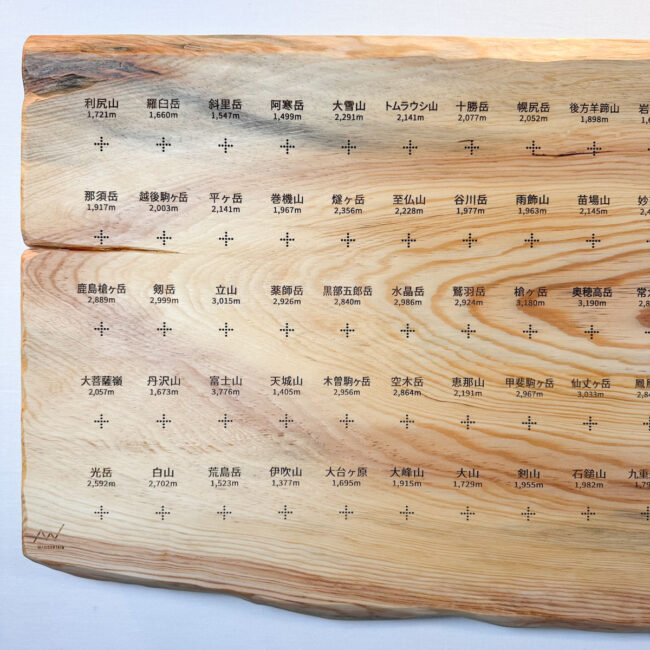 利尻山 羅臼岳 斜里岳 阿寒岳 大雪山 トムラウシ山 十勝岳 幌尻岳 後方羊蹄山 岩
1,721m 1,660m 1,547m 1,499m 2,291m 2,141m 2,077m 2,052m 1,898m
那須岳 越後駒ヶ岳 平ヶ岳 巻機山 燧ヶ岳 至仏山 谷川岳 雨飾山 苗場山 妙
1,917m 2,003m 2,141m 1,967m 2,356m 2,228m 1,977m 1,963m 2,145m
鹿島槍ヶ岳 剱岳 立山 薬師岳 黒部五郎岳 水晶岳 鷲羽岳 槍ヶ岳 奥穂高岳 常
2,889m 2,999m 3,015m 2,926m 2,840m 2,986m 2,924m 3,180m 3,190m
大菩薩嶺 丹沢山 富士山 天城山 木曽駒ヶ岳 空木岳 恵那山 甲斐駒ヶ岳 仙丈ヶ岳 鳳
2,057m 1,673m 3,776m 1,405m 2,956m 2,864m 2,191m 2,967m 3,033m
光岳 白山 荒島岳 伊吹山 大台ヶ原 大峰山 大山 剣山 石鎚山 九重
2,592m 2,702m 1,523m 1,377m 1,695m 1,915m 1,729m 1,955m 1,982m